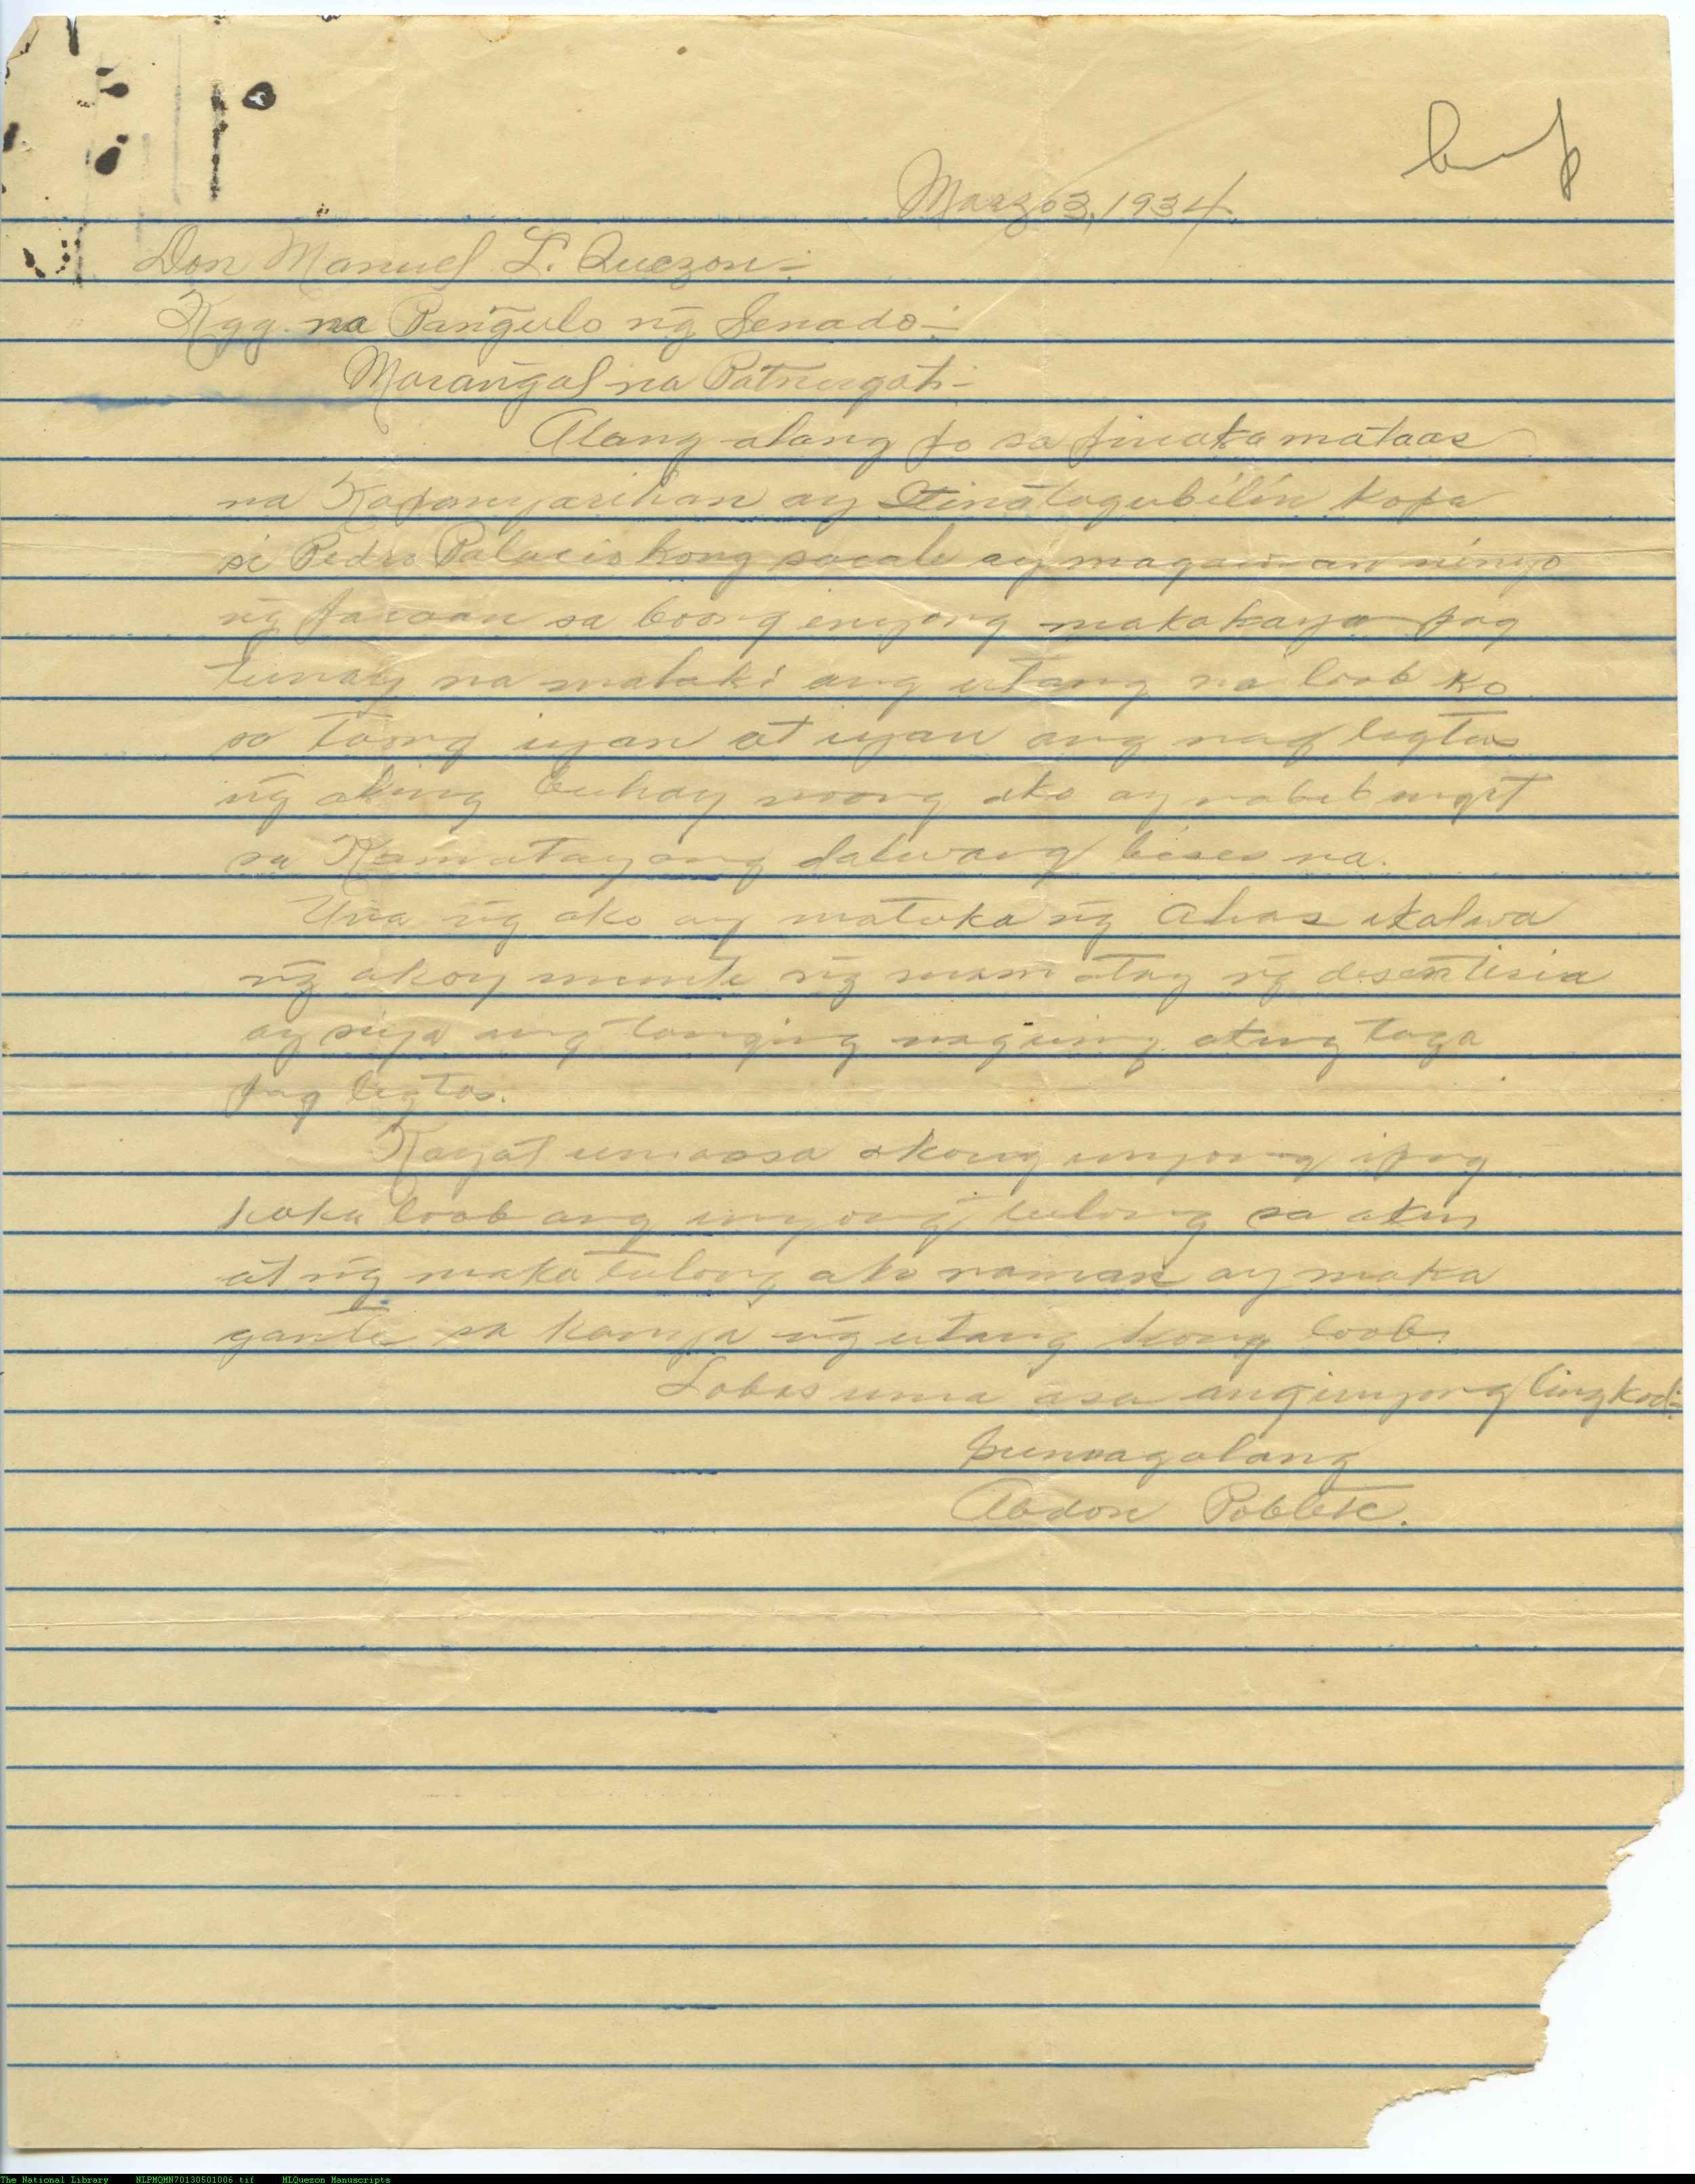 Marzo 3, 1934.
Don Manuel L. Quezon:-
Kgg. na Pañgulo ng̃ Senado:-
Marañgal na Patnugot:-
Alang alang po sa pinaka mataas
na Kapangyarihan ay Itinatagubilin kopa
si Pedro Palacio kong sacale ay magawan ninyo
ng̃ paraan sa boong inyong makakaya pag
tunay na malaki ang utang na loob ko
sa taong iyan at iyan ang nag ligtas
ng̃ aking buhay noong ako ay nabibingit
sa Kamatayang dalwang beses na.
Una ng̃ ako ay matuka ng̃ Ahas ikalwa
ng̃ akoy munte ng̃ mamatay ng̃ desentiria
ay siya ang tanging naguing aking taga
pag ligtas.
Kayat umaasa akong inyong ipag
kaka loob ang inyong tulong sa akin
at ng̃ maka tulong ako naman ay maka
gante sa kanya ng̃ utang kong loob.
Lobos uma asa ang inyong lingkod:-
pumagalang
Abdon Poblete.
The National Library NLPMQMN70130501006.tif MLQuezon Manuscripts